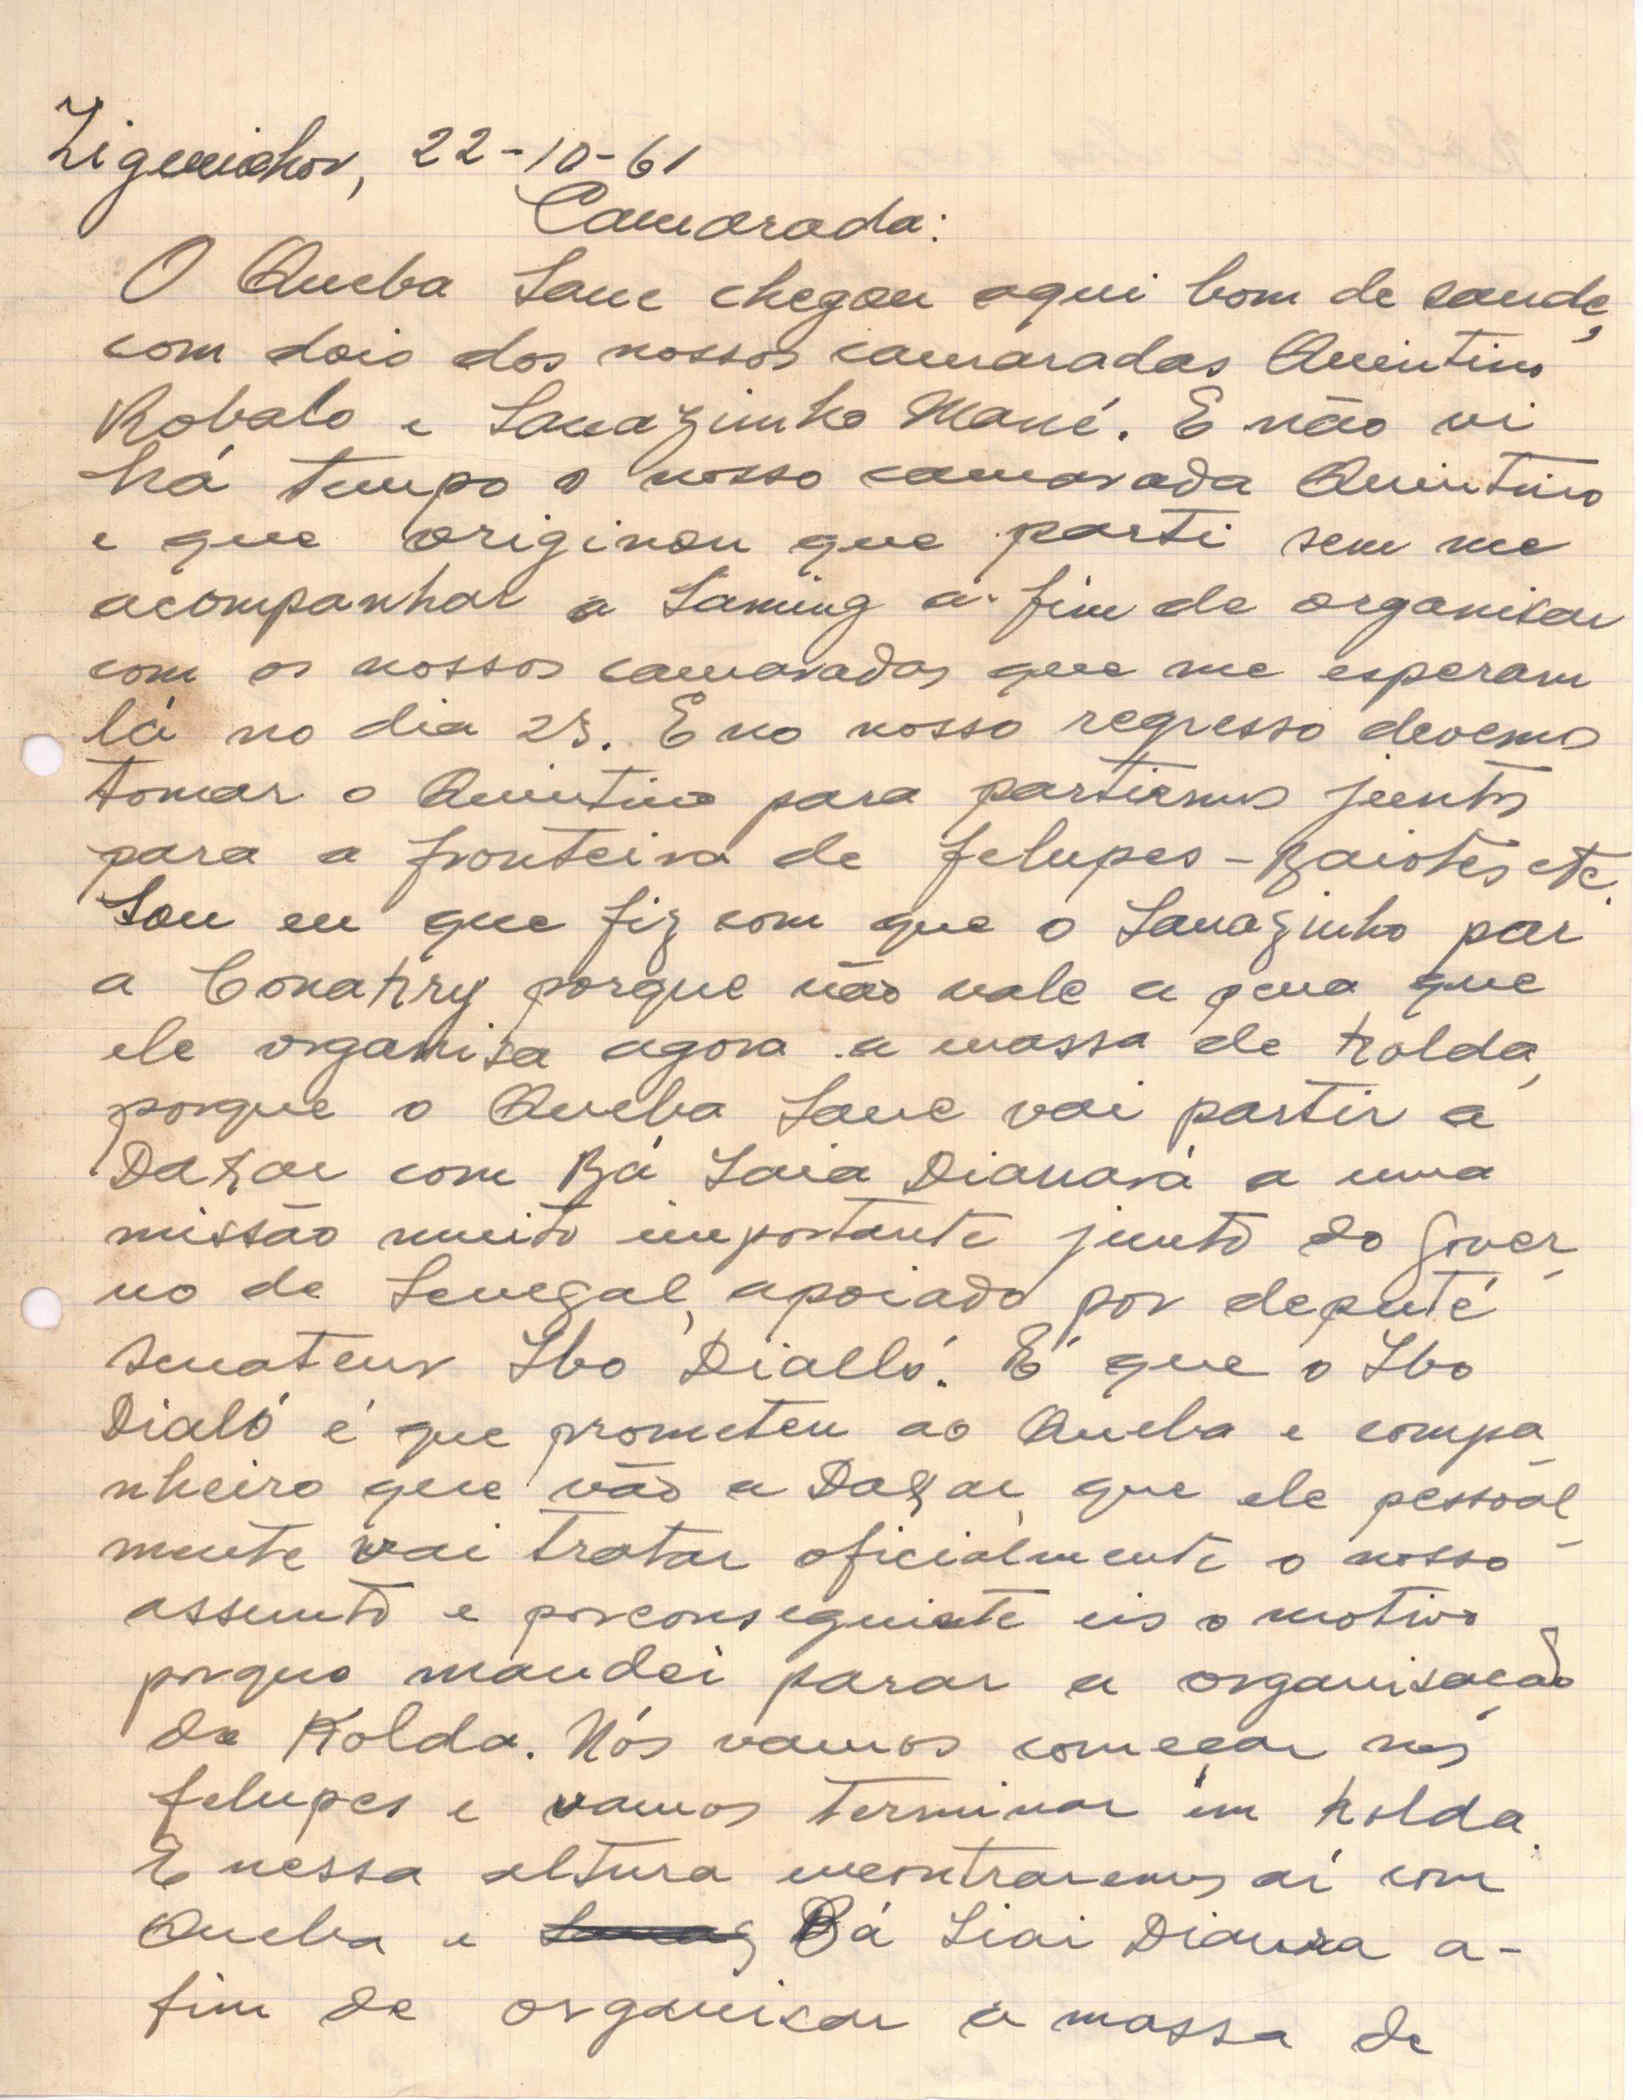 Ziguinchor, 22-10-61
Camarada:
O Queba Sane chegou aqui bom de saude,
com dois dos nossos camaradas Quintino
Robalo e Sanazinho Mané. E não vi
há tempo o nosso camarada Quintino
e que originou que parti sem me
acompanhar a Samine a-fim de organisar
com os nossos camaradas que me esperam
lá no dia 23. E no nosso regresso devemos
tomar o Quintino para partirmos juntos
para a fronteira de felupes-Baiotes etc.
Sou eu que fiz com que o Sanazinho par
a Conakry porque não vale a pena que
ele organisa agora a massa de Kolda,
porque o Queba Sane vai partir a
Dakar com Bá Saia Dianará a uma
missão muito importante junto do Gover_
no de Senegal, apoiado por deputé
senateur Ibo Dialló. É que o Ibo
Dialó é que prometeu ao Queba e compa
nheiro que vão a Dakar, que ele pessoal_
mente vai tratar oficialmente o nosso
assunto e porconseguinte eis o motivo
porque mandei parar a organisação
de Kolda. Nós vamos começar nos
felupes e vamos terminar em Kolda.
E nessa altura encontraremos aí com
Queba e Bá Siai Dianra a-
fim de organisar a massa de